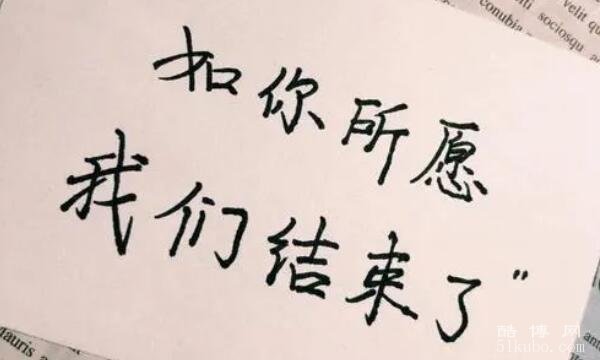 如你所愿
我们结束了"
velit qu
conubia
titi sociosqu a
Mauris a
酷博网
51kubo.com